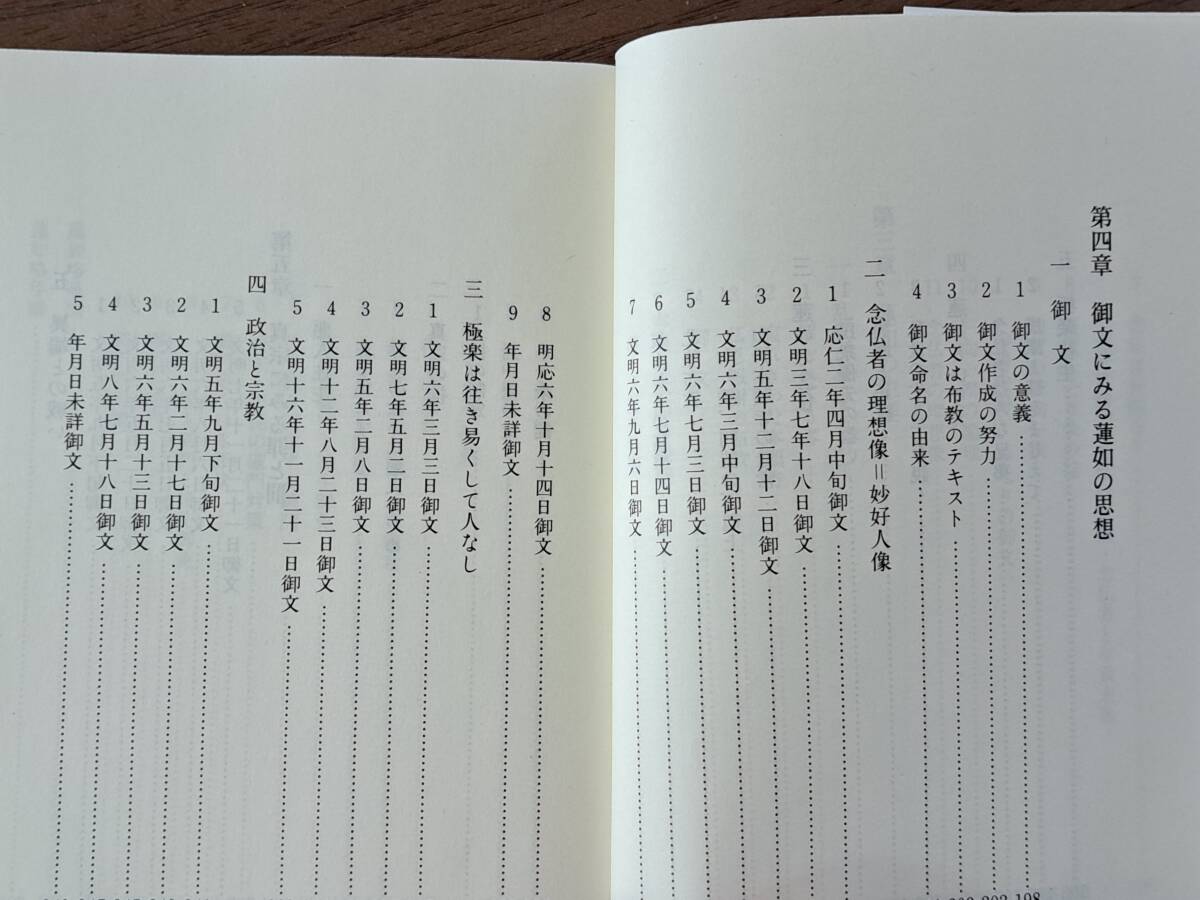 第四章　御文にみる蓮如の思想
一　御　文
1　御文の意義
2　御文作成の努力
3　御文は布教のテキスト
4　御文命名の由来
二　念仏者の理想像＝妙好人像
1　応仁二年四月中旬御文
2　文明三年七年十八日御文
3　文明五年十二月十二日御文
4　文明六年三月中旬御文
5　文明六年七月三日御文
6　文明六年七月十四日御文
7　文明六年九月六日御文
8　明応六年十月十四日御文
9　年月日未詳御文
三　極楽は往き易くして人なし
1　文明六年三月三日御文
2　文明七年五月二日御文
3　文明五年二月八日御文
4　文明十二年八月二十三日御文
5　文明十六年十一月二十一日御文
四　政治と宗教
1　文明五年九月下旬御文
2　文明六年二月十七日御文
3　文明六年五月十三日御文
4　文明八年七月十八日御文
5　年月日未詳御文